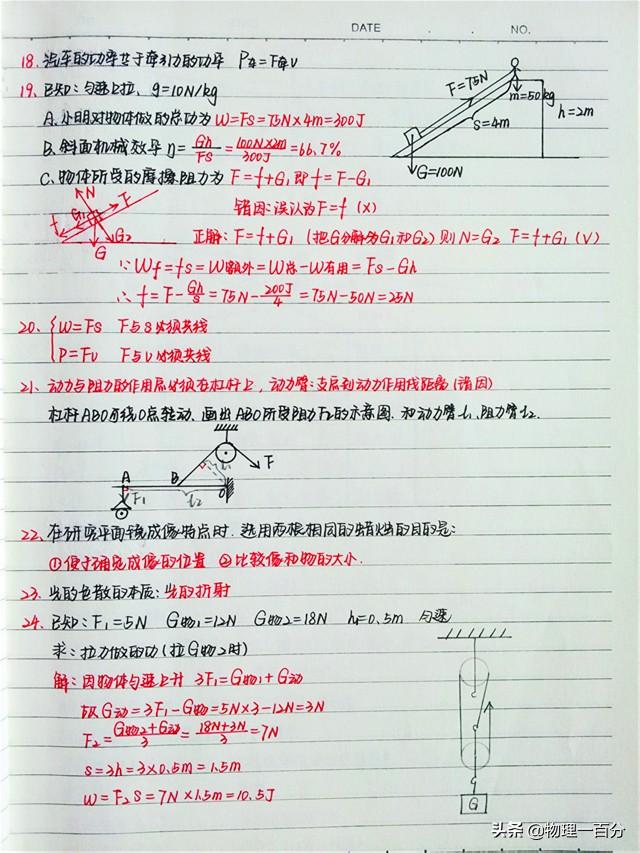 DATE . . NO.
18. 汽车的功率等于牵引力的功率 P车=F牵v
19. 已知:匀速上拉, g=10N/kg
F=75N
m=50kg
h=2m
S=4m
G=100N
A. 小明对物体做的总功为 W=FS=75N×4m=300J
B. 斜面机械效率 η=Gh/FS=100N×2m/300J=66.7%
C. 物体所受的摩擦阻力为 F=f+G1 即 f=F-G1
错因:误认为F=f (×)
N
F
G1
f
G2
G
正解:F=f+G1 (把G分解为G1和G2) 则N=G2 F=f+G1(√)
∵ Wf=fs=W额外=W总-W有用=Fs-Gh
∴ f=F-Gh/s=75N-200J/4=75N-50N=25N
20、{W=FS F与S必须共线
P=Fv F与v必须共线
21、动力与阻力的作用点必须在杠杆上, 动力臂:支点到动力作用线距离(错因)
杠杆ABO可绕O点转动、画出ABO所受阻力F2的示意图、和动力臂L1、阻力臂L2.
A
B
O
F
F1
L1
L2
22、在研究平面镜成像特点时. 选用两根相同的蜡烛的目的是:
①便于确定成像的位置 ②比较像和物的大小.
23、光的色散的本质:光的折射
24、已知:F1=5N G物1=12N G物2=18N h=0.5m 匀速
求:拉力做的功(拉G物2时)
解:因物体匀速上升 3F1=G物1+G动
故G动=3F1-G物=5N×3-12N=3N
F2=G物2+G动/3=18N+3N/3=7N
S=3h=3×0.5m=1.5m
W=F2S=7N×1.5m=10.5J
G
头条 @物理一百分